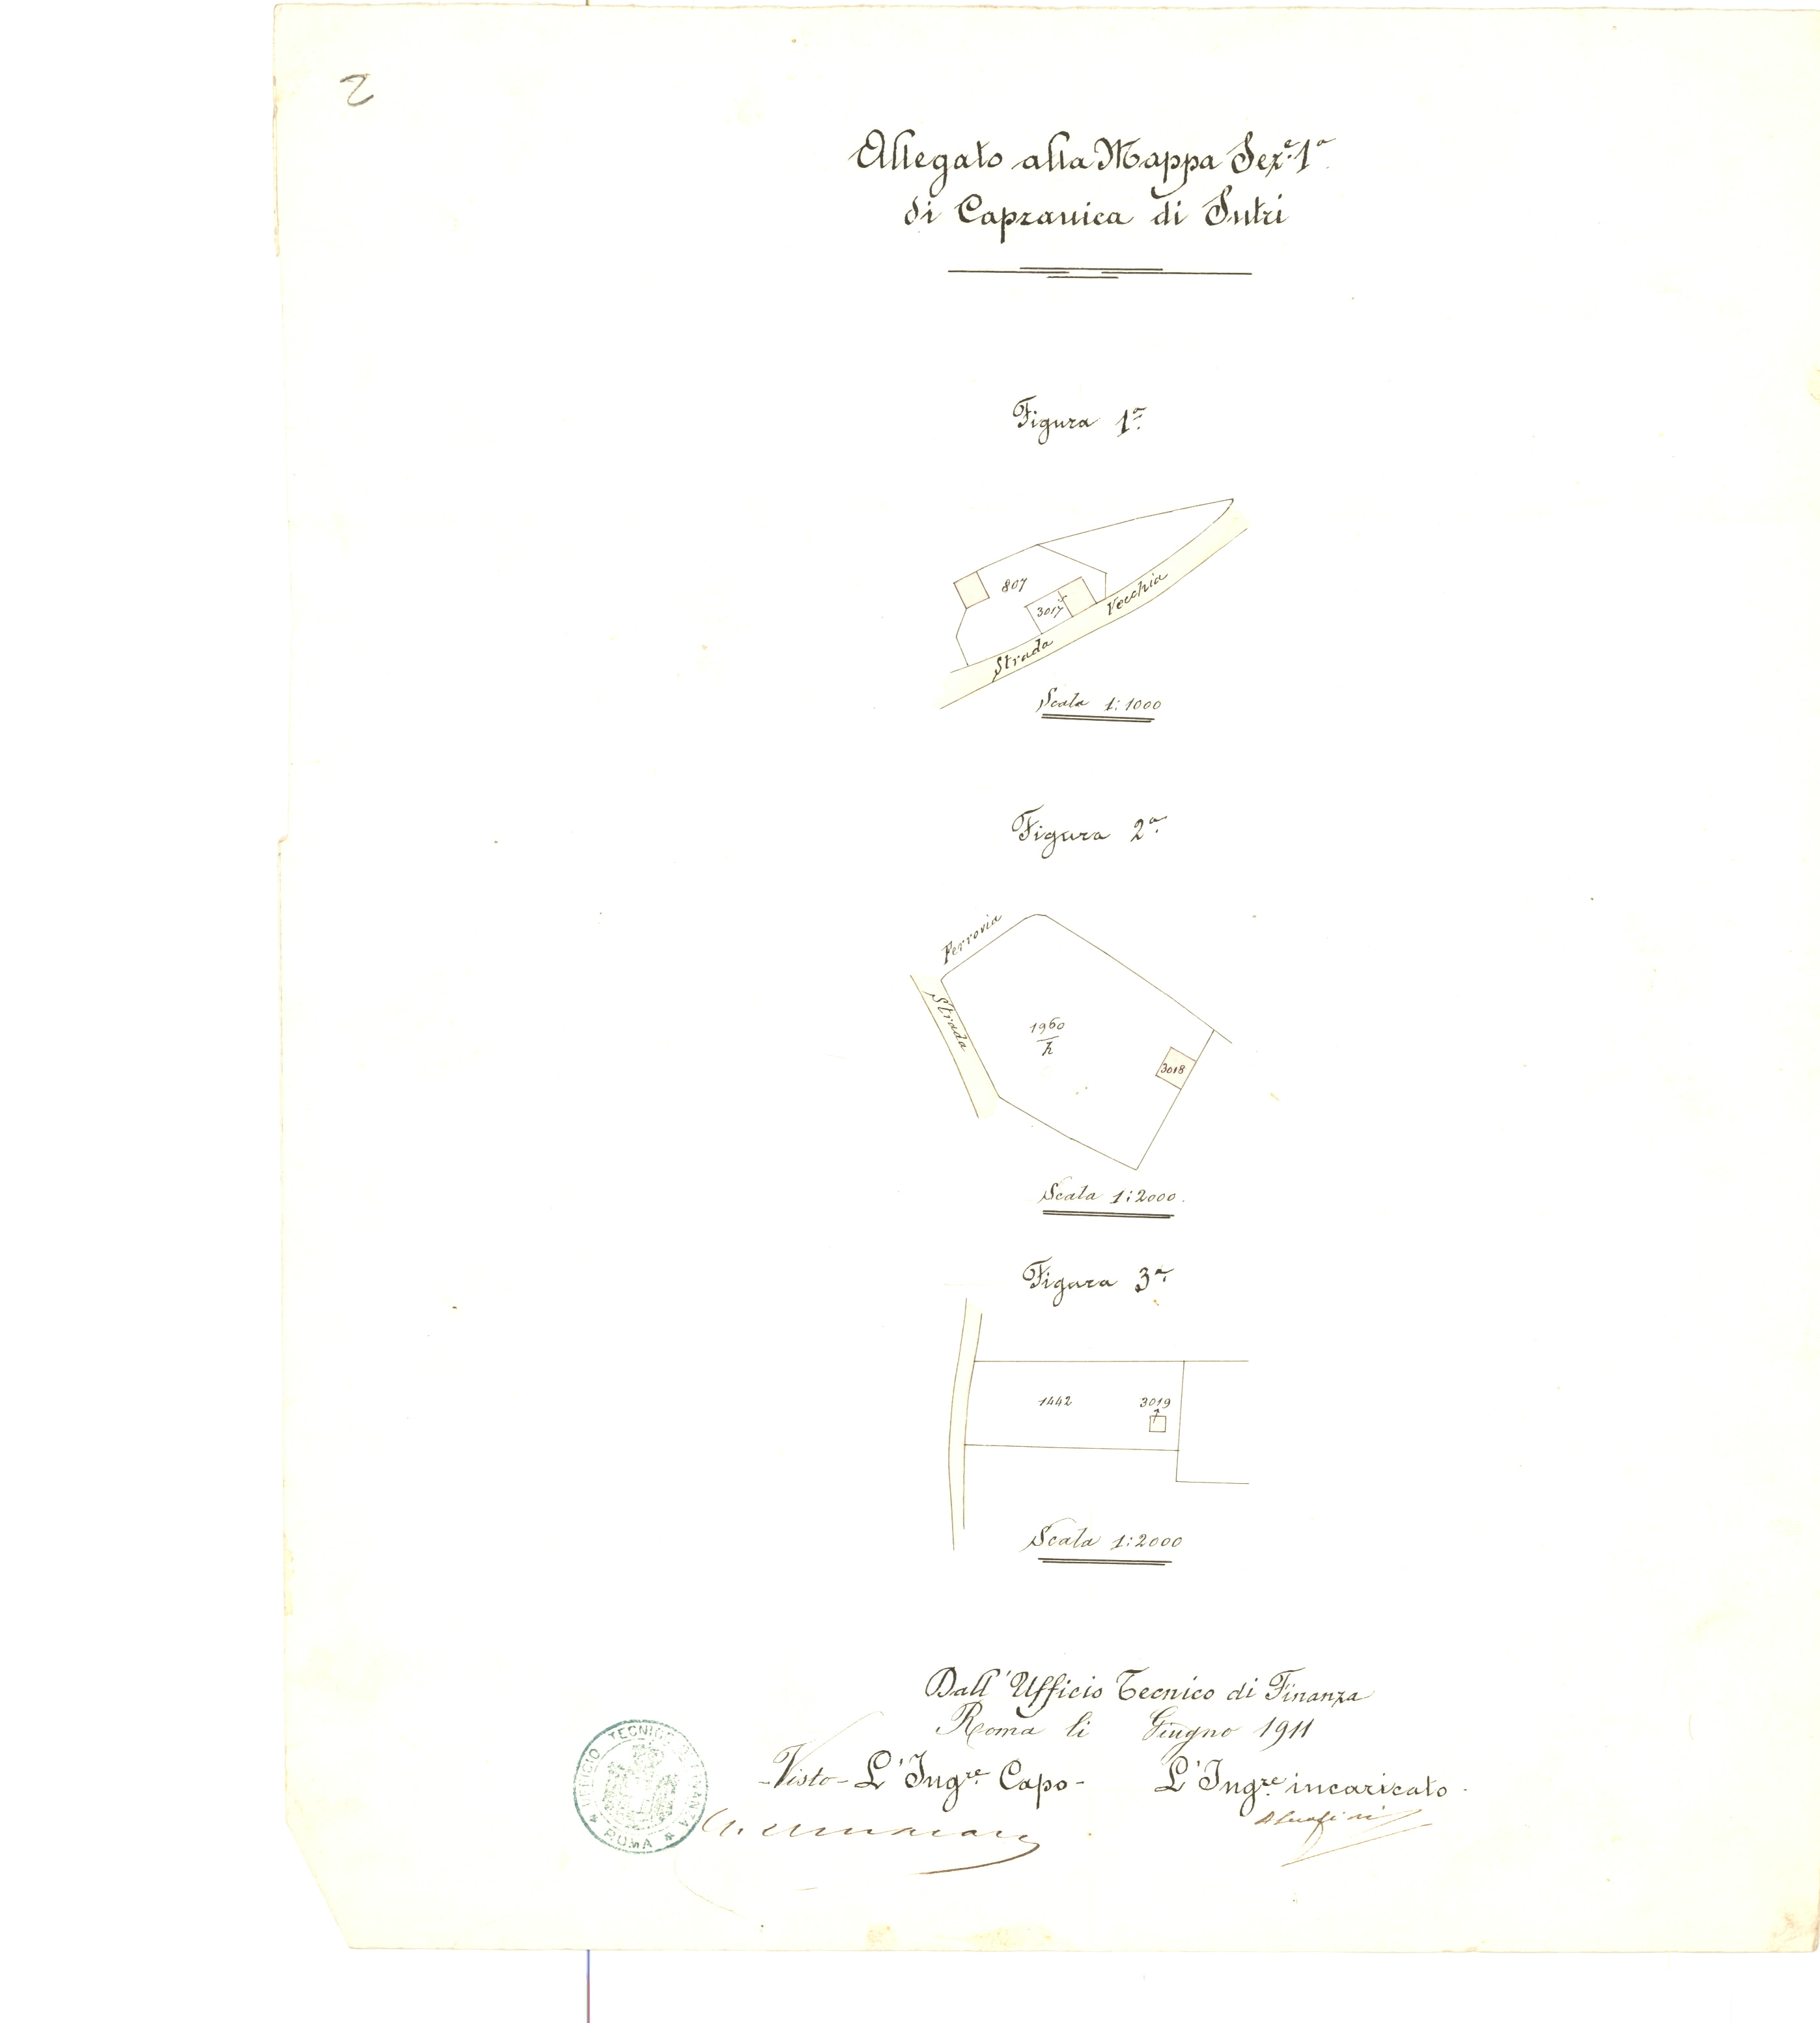 2
Allegato alla Mappa Sez.e 1a
di Capranica di Sutri
Figura 1a.
807
3017
Strada Vecchia
Scala 1:1000
Figura 2a.
Ferrovia
Strada
1960
3018
Scala 1:2000.
Figura 3a.
1442
3019
Scala 1:2000
Dall'Ufficio Tecnico di Finanza
Roma li Giugno 1911
Visto - L'Ing.re Capo - L'Ing.re incaricato.
UFFICIO TECNICO DI FINANZA
ROMA